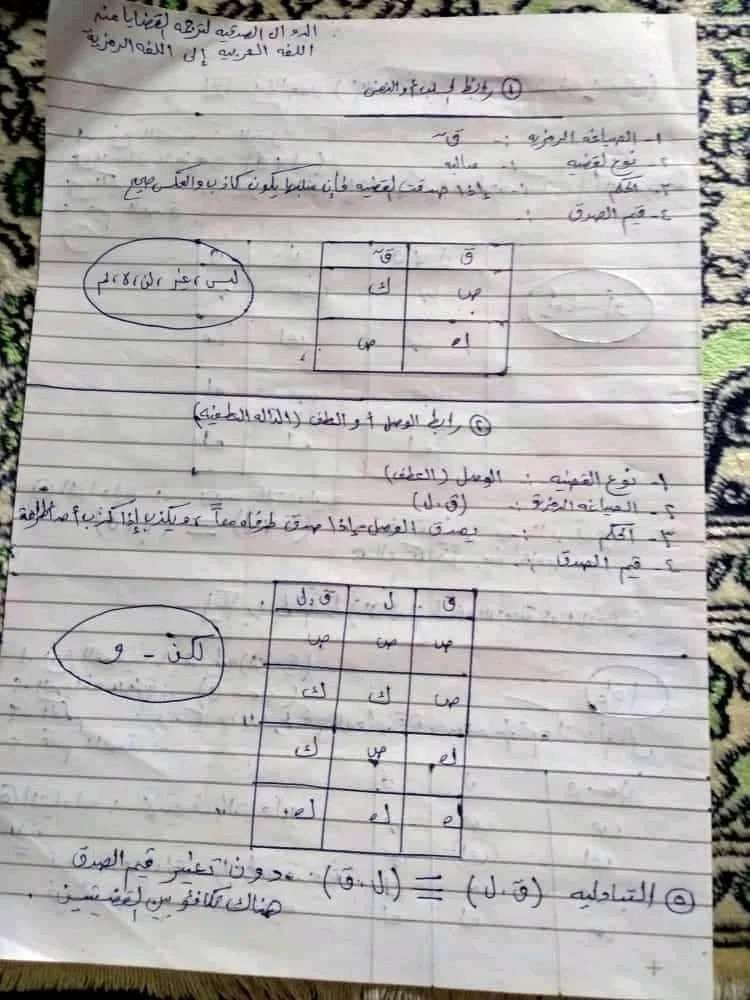 الدوال الصدقيه لترجمة القضايا من
اللغه العربيه إلى اللغه الرمزية
① رابط السلب أو النفي
١- الصياغه الرمزيه :- ق~
٢- نوع القضيه :- سالبه
٣- الحكم :- إذا صدقت القضيه فإن سلبها يكون كاذب والعكس صحيح
٤- قيم الصدق :-
ق ق~
ص ك
ك ص
ليس، غير، لن، لا، لم
② رابط الوصل أو العطف (الداله العطفيه)
١- نوع القضيه :- الوصل (العطف)
٢- الصياغه الرمزية :- (ق.ل)
٣- الحكم :- يصدق الوصل إذا صدق طرفاه معاً، ويكذب إذا كذب أحد أطرافه
٤- قيم الصدق :-
ق ل ق.ل
ص ص ص
ص ك ك
ك ص ك
ك ك ك
لكن - و
⑤ التبادليه (ق.ل) ≡ (ل.ق) . دون تغيير قيم الصدق
هناك تكافؤ بين القضيتين .